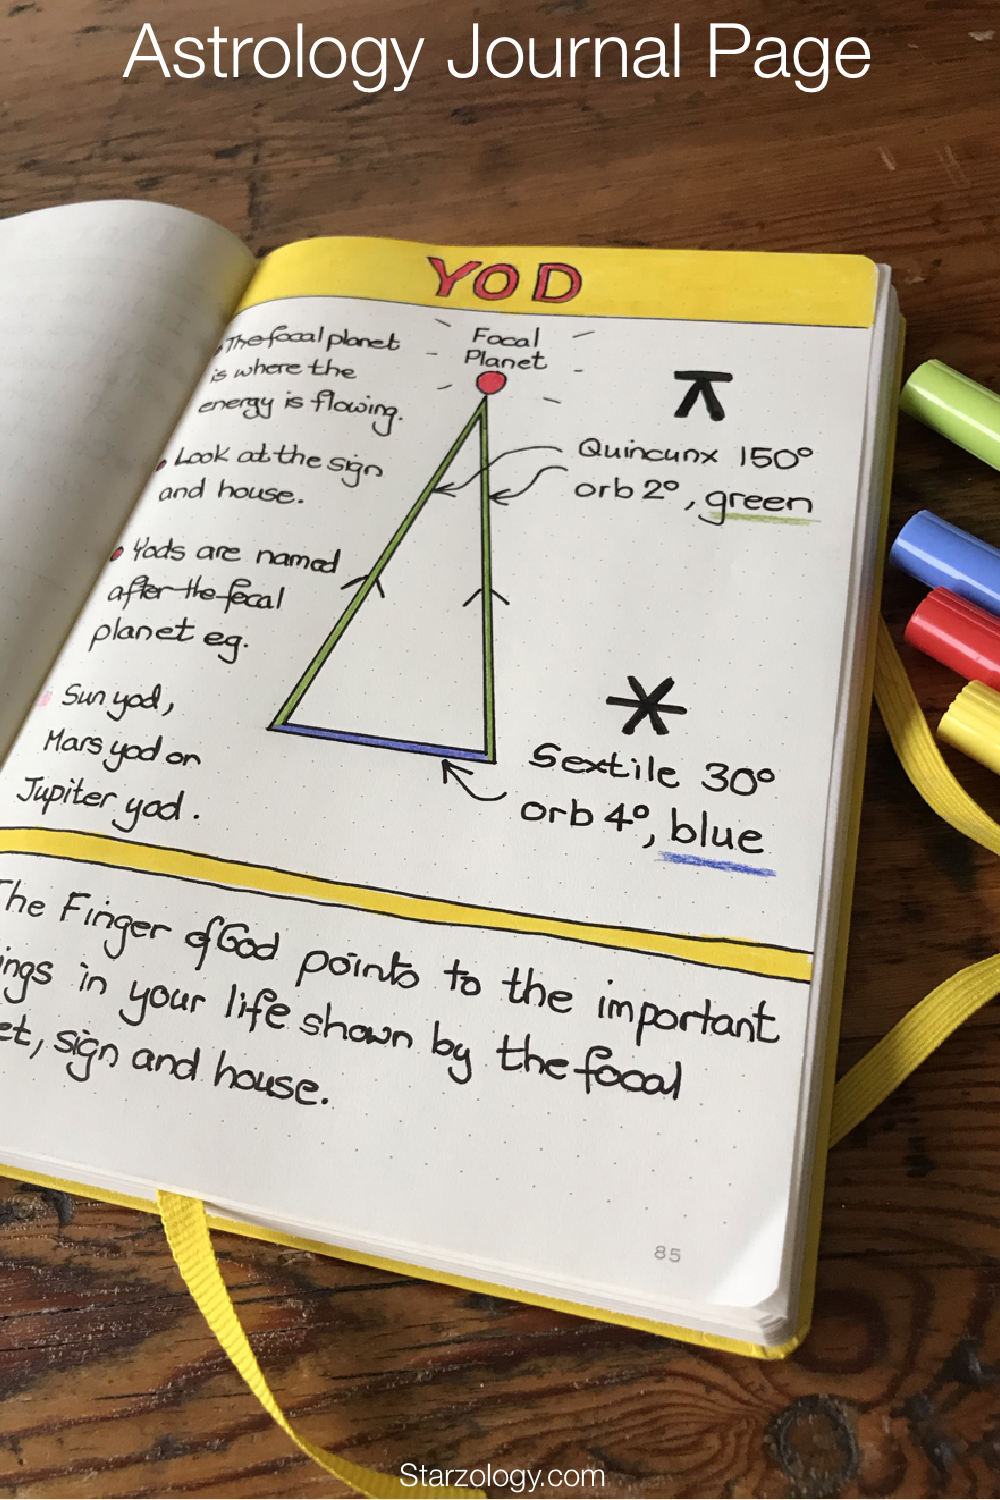 Astrology Journal Page
YOD
The focal planet
is where the
energy is flowing.
Look at the sign
and house.
Yods are named
after the focal
planet eg.
Sun yod,
Mars yod on
Jupiter yod.
Focal
Planet
Quincunx 150°
orb 2°, green
Sextile 30°
orb 4°, blue
The Finger of God points to the important
ings in your life shown by the focal
et, sign and house.
85
Starzology.com